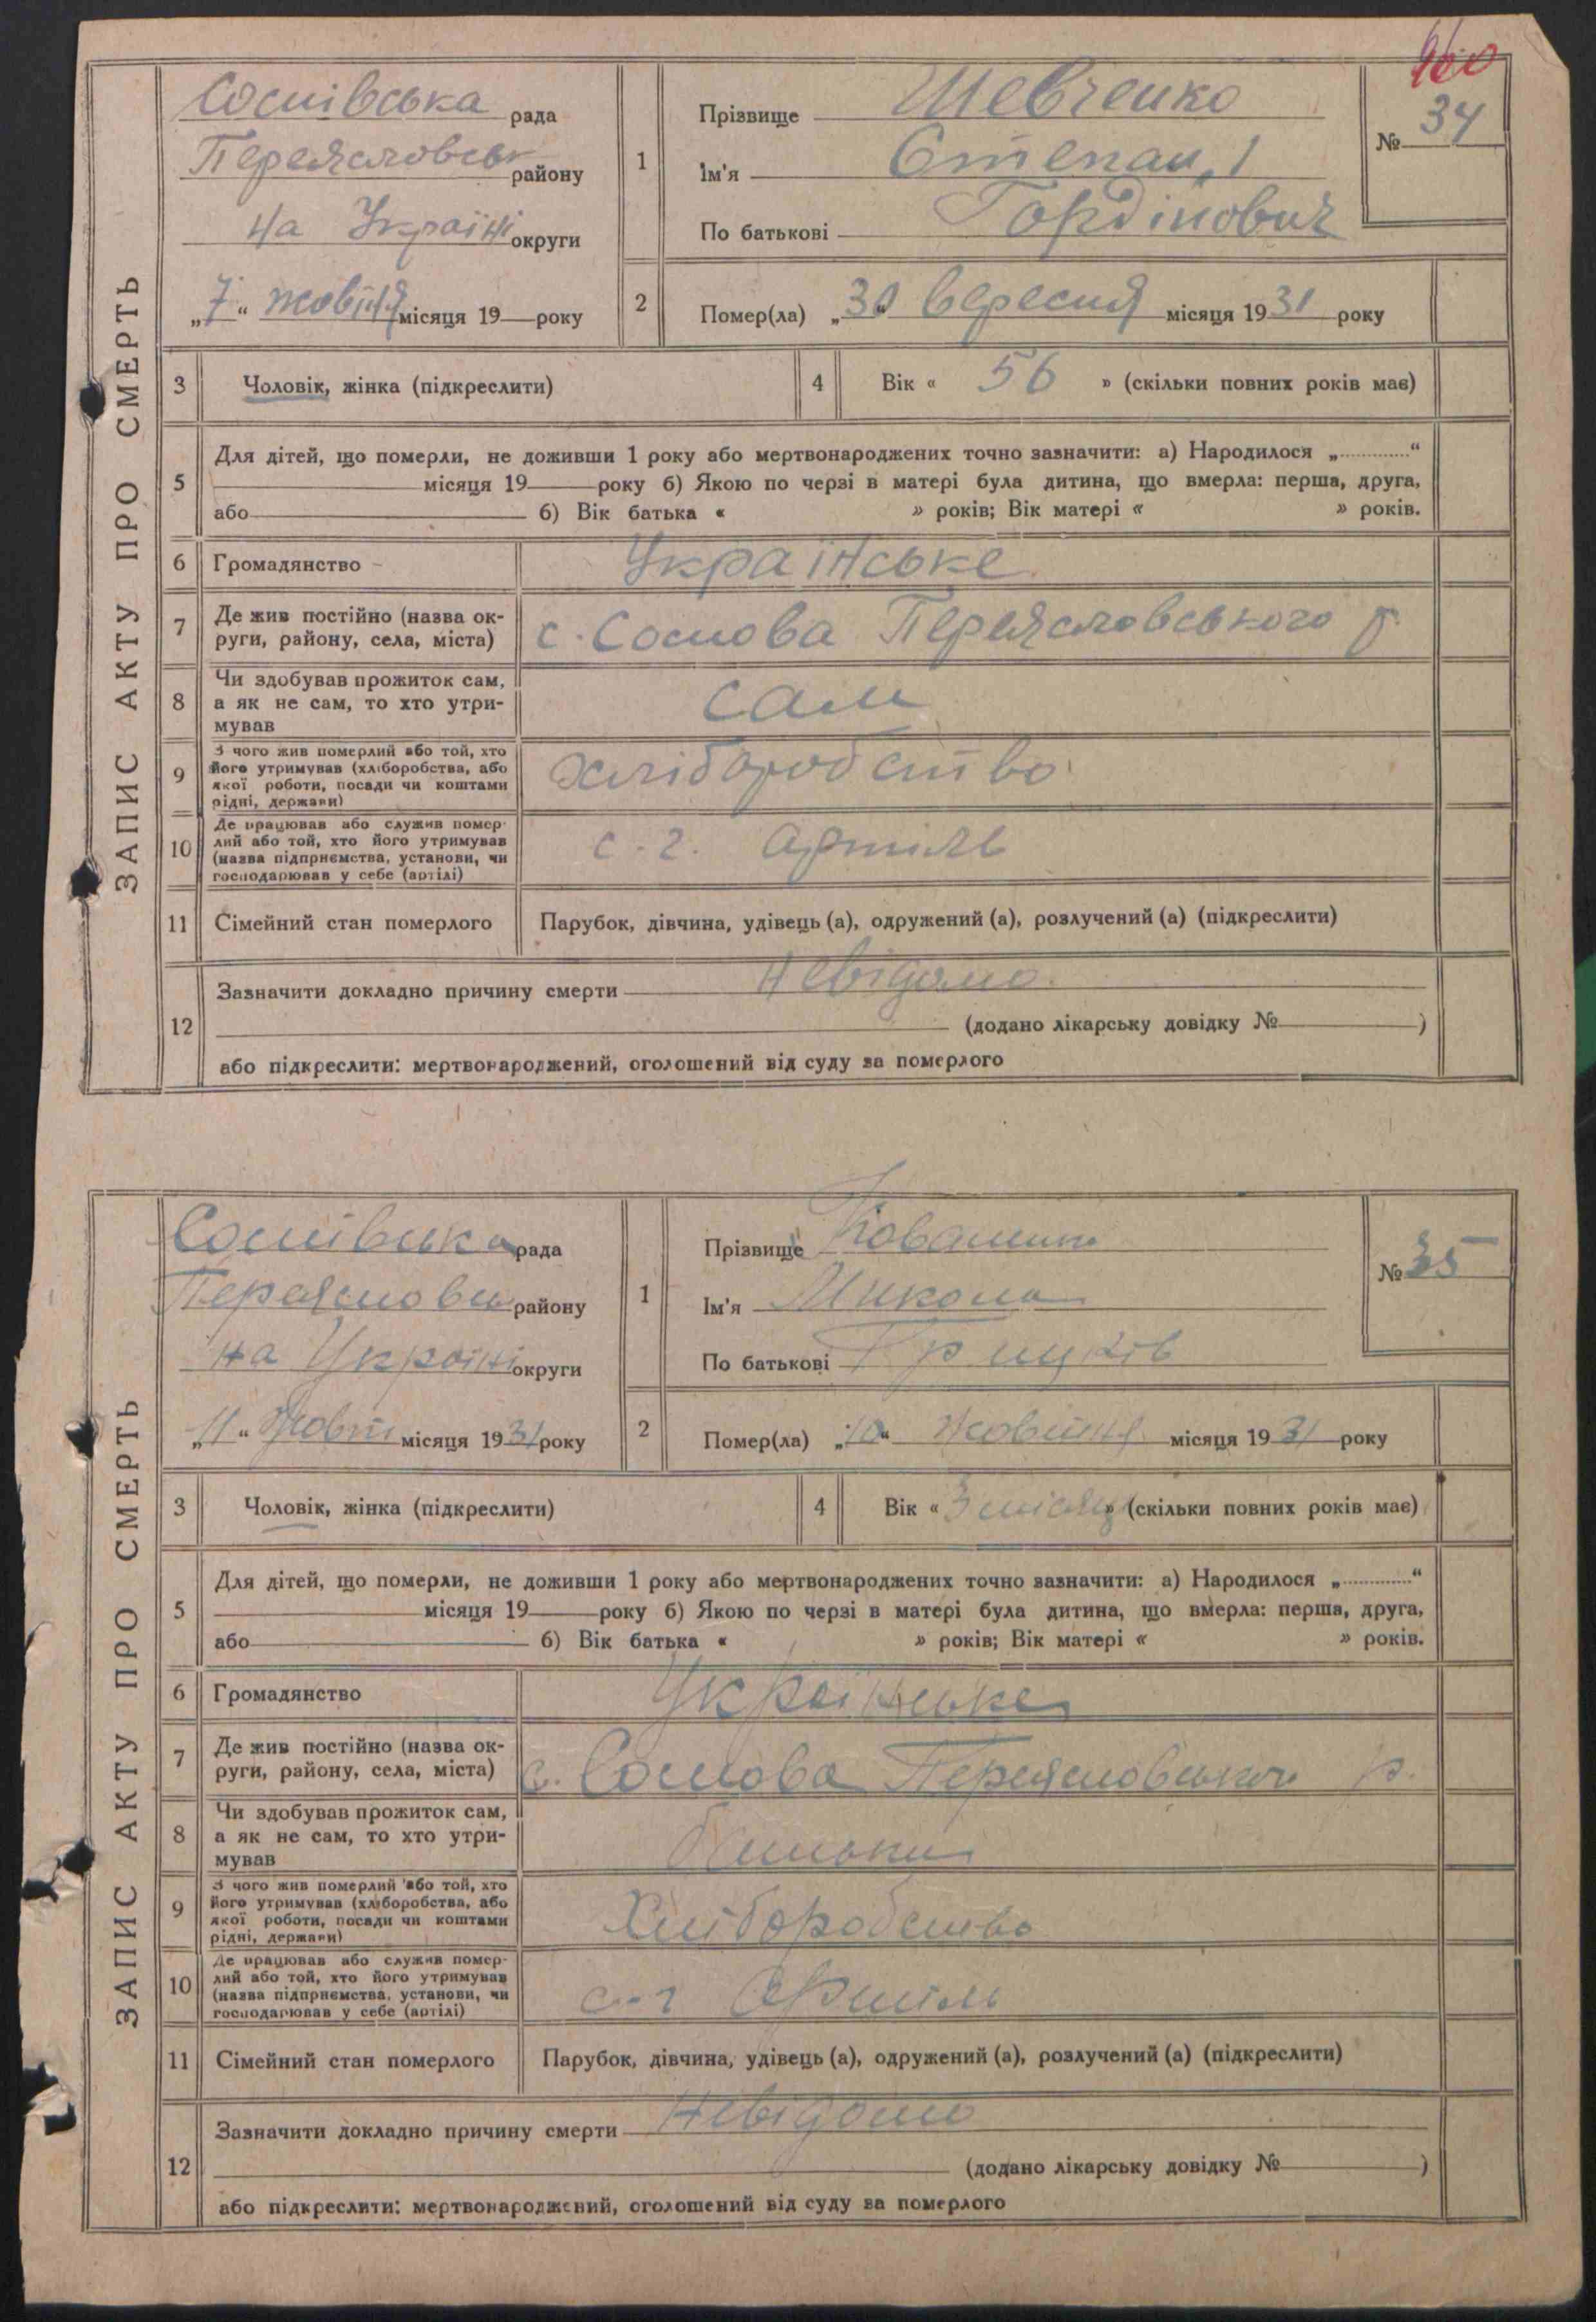 460
ЗАПИС АКТУ ПРО СМЕРТЬ
Соснівська рада
Переяславськ району
на Україні округи
„7“ жовтня місяця 19 року
1
Прізвище Шевченко
Ім'я Степан
По батькові Гордінович
№ 34
2
Помер(ла) „30“ вересня місяця 1931 року
3 Чоловік, жінка (підкреслити)
4 Вік « 56 » (скільки повних років має)
5
Для дітей, що померли, не доживши 1 року або мертвонароджених точно зазначити: а) Народилося „............“
місяця 19 року б) Якою по черзі в матері була дитина, що вмерла: перша, друга,
або б) Вік батька « » років; Вік матері « » років.
6 Громадянство Українське
7
Де жив постійно (назва ок-
руги, району, села, міста) с. Соснова Переяславського р.
8
Чи здобував прожиток сам,
а як не сам, то хто утри-
мував
сам
9
З чого жив померлий або той, хто
його утримував (хліборобства, або
якої роботи, посади чи коштами
рідні, держави)
хліборобство
10
Де працював або служив помер-
лий або той, хто його утримував
(назва підприємства, установи, чи
господарював у себе (артілі)
с. г. артіль
11 Сімейний стан померлого Парубок, дівчина, удівець (а), одружений (а), розлучений (а) (підкреслити)
12
Зазначити докладно причину смерти невідомо
(додано лікарську довідку № )
або підкреслити: мертвонароджений, оголошений від суду за померлого
ЗАПИС АКТУ ПРО СМЕРТЬ
Соснівська рада
Переясловськ району
на Україні округи
„11“ жовтн місяця 1931 року
1
Прізвище
Ім'я Микола
По батькові Грицків
№ 35
2
Помер(ла) „10“ жовтня місяця 1931 року
3 Чоловік, жінка (підкреслити)
4 Вік « 3 місяц » (скільки повних років має)
5
Для дітей, що померли, не доживши 1 року або мертвонароджених точно зазначити: а) Народилося „............“
місяця 19 року б) Якою по черзі в матері була дитина, що вмерла: перша, друга,
або б) Вік батька « » років; Вік матері « » років.
6 Громадянство Українське
7
Де жив постійно (назва ок-
руги, району, села, міста) с. Соснова Переясловського р.
8
Чи здобував прожиток сам,
а як не сам, то хто утри-
мував
Батьки
9
З чого жив померлий або той, хто
його утримував (хліборобства, або
якої роботи, посади чи коштами
рідні, держави)
Хліборобство
10
Де працював або служив помер-
лий або той, хто його утримував
(назва підприємства, установи, чи
господарював у себе (артілі)
с-г Артіль
11 Сімейний стан померлого Парубок, дівчина, удівець (а), одружений (а), розлучений (а) (підкреслити)
12
Зазначити докладно причину смерти невідомо
(додано лікарську довідку № )
або підкреслити: мертвонароджений, оголошений від суду за померлого